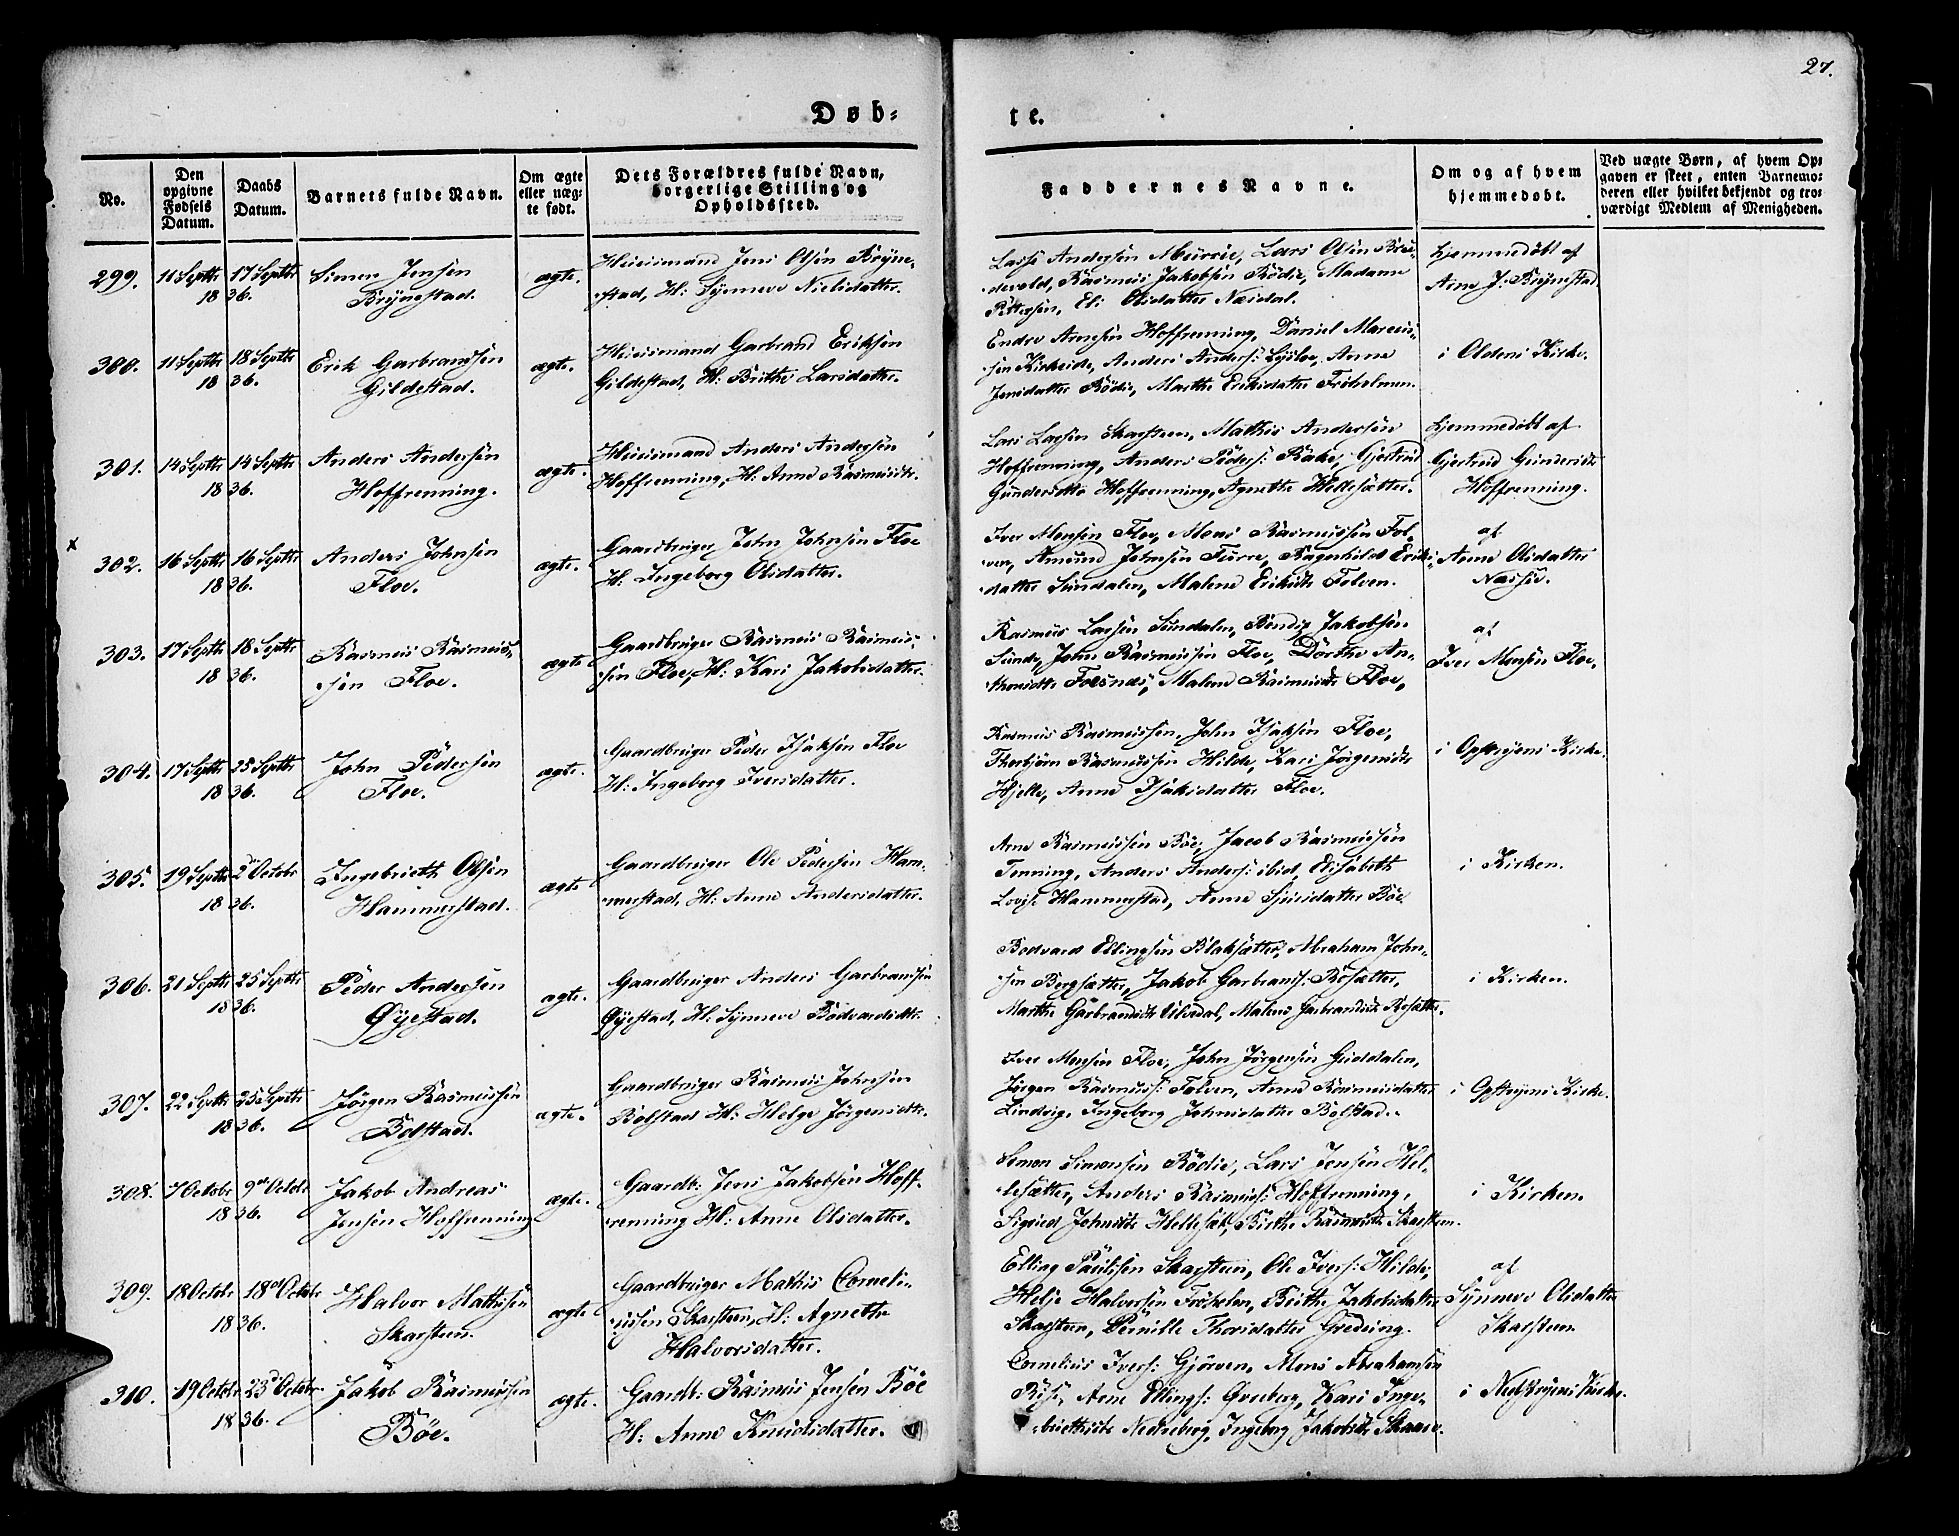 27.
Døb-
te.
No.
Den
opgivne
Fødsels
Datum.
Daabs
Datum.
Barnets fulde Navn.
Om ægte
eller uæg-
te født.
Dets Forældres fulde Navn,
borgerlige Stilling og
Opholdssted.
Faddernes Navne.
Om og af hvem
hjemmedøbt.
Ved uægte Børn, af hvem Op-
gaven er skeet, enten Barnemo-
deren eller hvilket bekjendt og tro-
værdigt Medlem af Menigheden.
299. 11 Septbr 17 Septbr
1836.
Simen Jensen
Bryngstad.
ægte.
Huusmand Jens Olsen Bryne-
stad, H: Synneve Nielsdatter.
Lasse Andersen Muurie, Lars Olsen Brei-
devold, Rasmus Jakobsen Rödie, Madame
Pettersen, Eli Olsdatter Næsdal.
hjemmedöbt af
Arne J: Brynestad
300. 11 Septbr 18 Septbr
1836.
Erik Garbrandsen
Gildestad.
ægte.
Huusmand Garbrand Eriksen
Gildestad, H: Birthe Larsdatter.
Endre Arnesen Hoffrenning, Daniel Marcus-
sen Kirkeide, Anders Anders: Lysloe, Anne
Jensdatter Rödie, Marthe Eriksdatter Fröholmen.
i Oldens Kirke.
301. 14 Septbr 14 Septbr
1836.
Anders Andersen
Hoffrenning.
ægte.
Huusmand Anders Andersen
Hoffrenning, H: Anne Rasmusdtr.
Lars Lassen Skarsteen, Mathis Andersen
Hoffrenning, Anders Peders: Rake, Gjertrud
Gundersdtr Hoffrenning, Agnethe Hildesætter.
hjemmedöbt af
Gjertrud Gundersdtr
Hoffrenning.
x
302. 16 Septbr 16 Septbr
1836.
Anders Johnsen
Floe.
ægte.
Gaardbruger John Johnsen Floe
H: Ingeborg Olsdatter.
Iver Monsen Floe, Mons Rasmussen Fol-
ven, Amund Johnsen Furre, Ragnhild Eriks-
datter Sundalen, Malene Eriksdtr Folven.
af
Anne Olsdatter
303. 17 Septbr 18 Septbr
1836.
Rasmus Rasmus-
sen Floe.
ægte
Gaardbruger Rasmus Rasmus-
sen Floe, H: Kari Jakobsdatter.
Rasmus Lassen Sundalen, Bendix Jakobsen
Sunde, John Rasmussen Floe, Dorthe An-
thonsdtr Fosnes, Malene Rasmusdtr Floe,
af
Iver Monsen Floe.
304. 17 Septbr 25 Septbr
1836.
John Pedersen
Floe.
ægte.
Gaardbruger Peder Isaksen Floe
H: Ingeborg Iversdatter.
Rasmus Rasmussen, John Isaksen Floe,
Thorbjörn Rasmussen Hilde, Kari Jörgensdtr
Hjelle, Anne Isaksdatter Floe.
i Opstryens Kirke.
305. 19 Septbr 2 Octobr
1836.
Ingebrieth Olsen
Hammerstad.
ægte
Gaardbruger Ole Pedersen Ham-
merstad, H: Anne Andersdatter.
Arne Rasmussen Böe, Jacob Rasmussen
Tenning, Anders Anders: ibid, Elisabeth
Lovise Hammerstad, Anne Sjursdatter Böe
i Kirken.
306. 21 Septbr 25 Septbr
1836.
Peder Andersen
Øyestad.
ægte.
Gaardbruger Anders Garbrandsen
Øyestad, H: Synneve Bodvardsdtr.
Bodvard Ellingsen Blaksætter, Abraham John-
sen Bergsætter, Jakob Garbrands: Røsætter,
Marthe Garbrandsdtr, Malene Garbrandsdtr Røsætter.
i Kirken.
307. 22 Septbr 25 Septbr
1836.
Jörgen Rasmussen
Bolstad.
ægte.
Gaardbruger Rasmus Johnsen
Bolstad H: Helge Jörgensdtr.
Iver Monsen Floe, John Jörgensen Guddalen,
Jörgen Rasmuss: Folven, Anne Rasmusdatter
Lindvig, Ingeborg Johnsdatter Bolstad.
i Opstryens Kirke.
308. 7 Octobr 9de Octobr
1836.
Jakob Andreas
Jensen Hoffrenning
ægte.
Gaardb: Jens Jakobsen Hoff-
renning H: Anne Olsdatter.
Simon Simonsen Rödie, Lars Jensen Hel-
lesætter, Anders Rasmus: Hoffrenning,
Sigried Johnsdtr Hellesæt, Birthe Rasmusdtr Skarsteen.
i Kirken.
309. 18 Octobr 18de Octobr
1836.
Halvor Mathisen
Skarsteen.
ægte
Gaardbruger Mathis Corneli-
ussen Skarsteen, H: Agnethe
Halvorsdatter.
Elling Paulsen Skarsteen, Ole Ivers: Hilde,
Helje Halvorsen Fröholen, Birthe Jakobsdatter
Skarsteen, Pernille Thorsdatter Gredung.
af
Synneve Olsdatter
Skarsteen
310. 19 Octobr 23d Octobr
1836.
Jakob Rasmussen
Böe.
ægte.
Gaardb: Rasmus Jensen Böe
H: Anne Knudsdatter.
Cornelius Ivers: Gjörven, Mons Abrahamsen
Riise, Arne Ellings: Övreberg, Kari Inge-
briethsdtr Nedreberg, Ingeborg Jakobsdtr Skaare.
i Nedstryens Kirke.